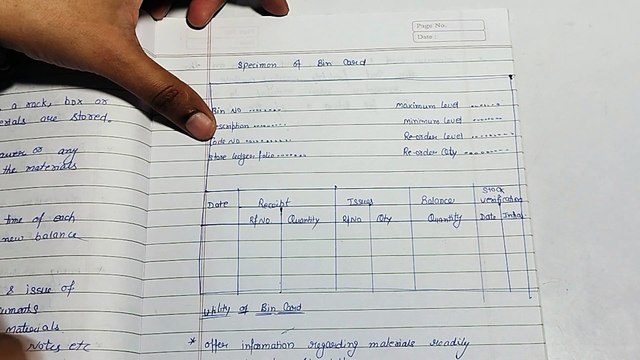 Page No.
Date :
Specimen of Bin Card
a rack, box or
are stored.
or any
the materials
time of each
new balance
& issue of
materials
Notes etc
Bin No ........
Maximum Level .......
minimum Level ........
Code No ..........
Re-order Level .........
Store ledger folio .......
Re-order Qty ..........
Date Receipt Issues Balance Stock verification
R/No. Quantity R/No. Qty Quantity Date Initial
Utility of Bin Card
* offer information regarding materials readily